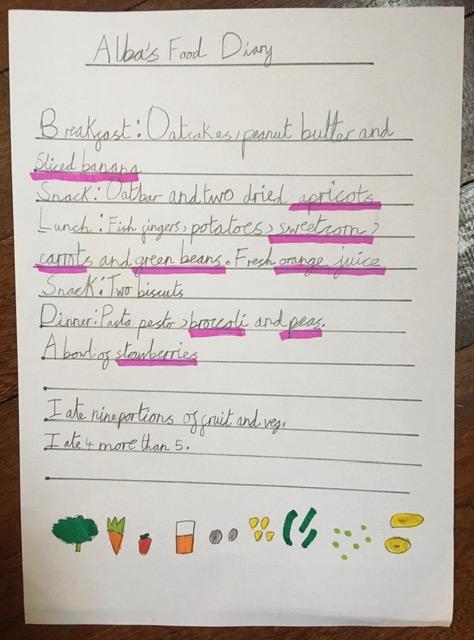 Alba's Food Diary
Breakfast: Oatcakes, peanut butter and
sliced banana
Snack: Oatbar and two dried apricots
Lunch: Fish fingers, potatoes, sweetcorn,
carrots and green beans. Fresh orange juice
Snack: Two biscuits
Dinner: Pasta pesto, broccoli and peas.
A bowl of strawberries
I ate nine portions of fruit and veg.
I ate 4 more than 5.